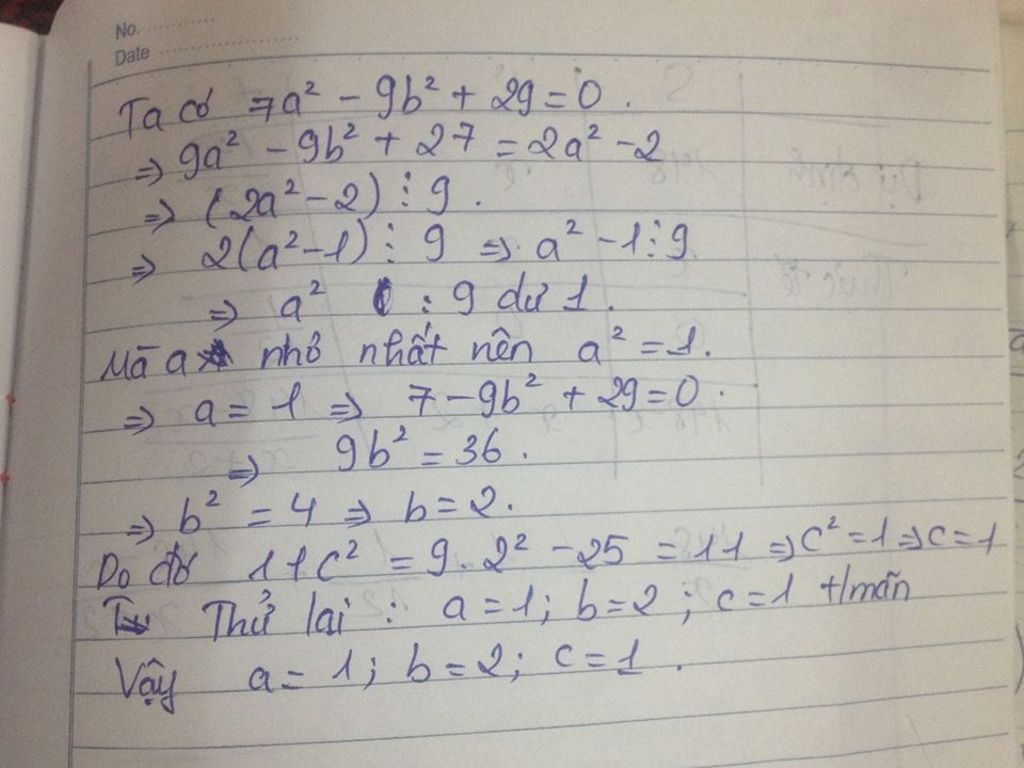 No.
Date
Ta có 7a² - 9b² + 29 = 0.
⇒ 9a² - 9b² + 27 = 2a² - 2
⇒ (2a² - 2) ⋮ 9.
⇒ 2(a² - 1) ⋮ 9 ⇒ a² - 1 ⋮ 9
⇒ a² : 9 dư 1.
Mà a nhỏ nhất nên a² = 1.
⇒ a = 1 ⇒ 7 - 9b² + 29 = 0.
⇒ 9b² = 36.
⇒ b² = 4 ⇒ b = 2.
Do đó 11c² = 9. 2² - 25 = 11 ⇒ c² = 1 ⇒ c = 1
Thử lại : a = 1; b = 2; c = 1 t/mãn
Vậy a = 1; b = 2; c = 1.